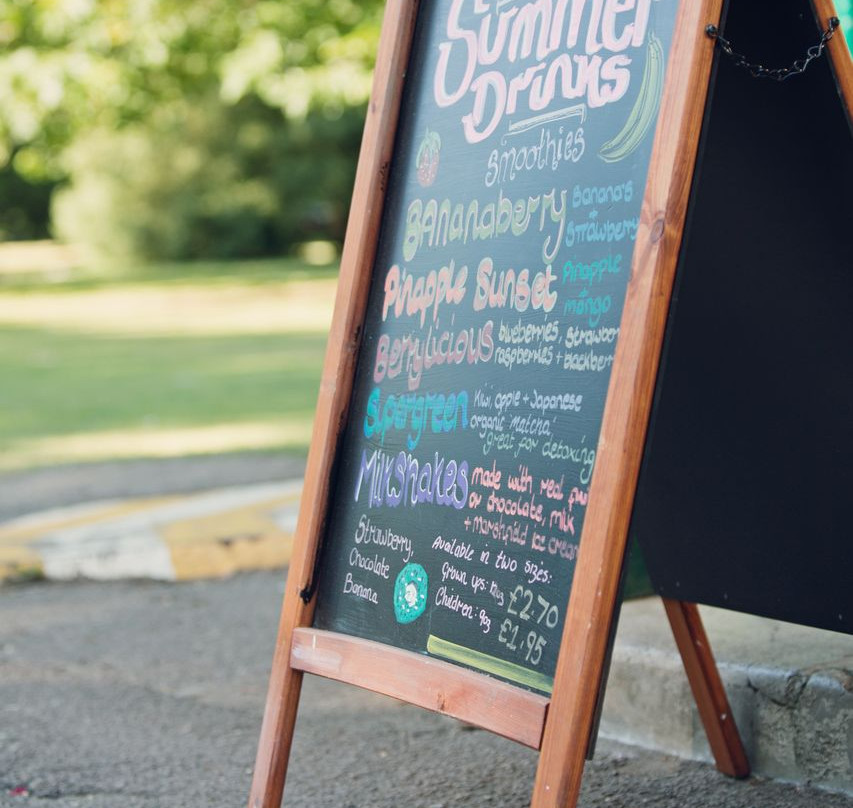 Summer
Drinks
Smoothies
BAnanaberry Banana's + Strawberry
Pinapple Sunset Pinapple + mango
Berrylicious blueberries, Strawberr
raspberries + blackberr
Supergreen Kiwi, apple + Japanese
organic 'matcha'
great for detoxing
Milkshakes made with real
or chocolate, milk
+ marshfield ice cream
Strawberry,
Chocolate
Banana
Available in two sizes:
Grown ups: £2.70
Children: 9oz £1.95